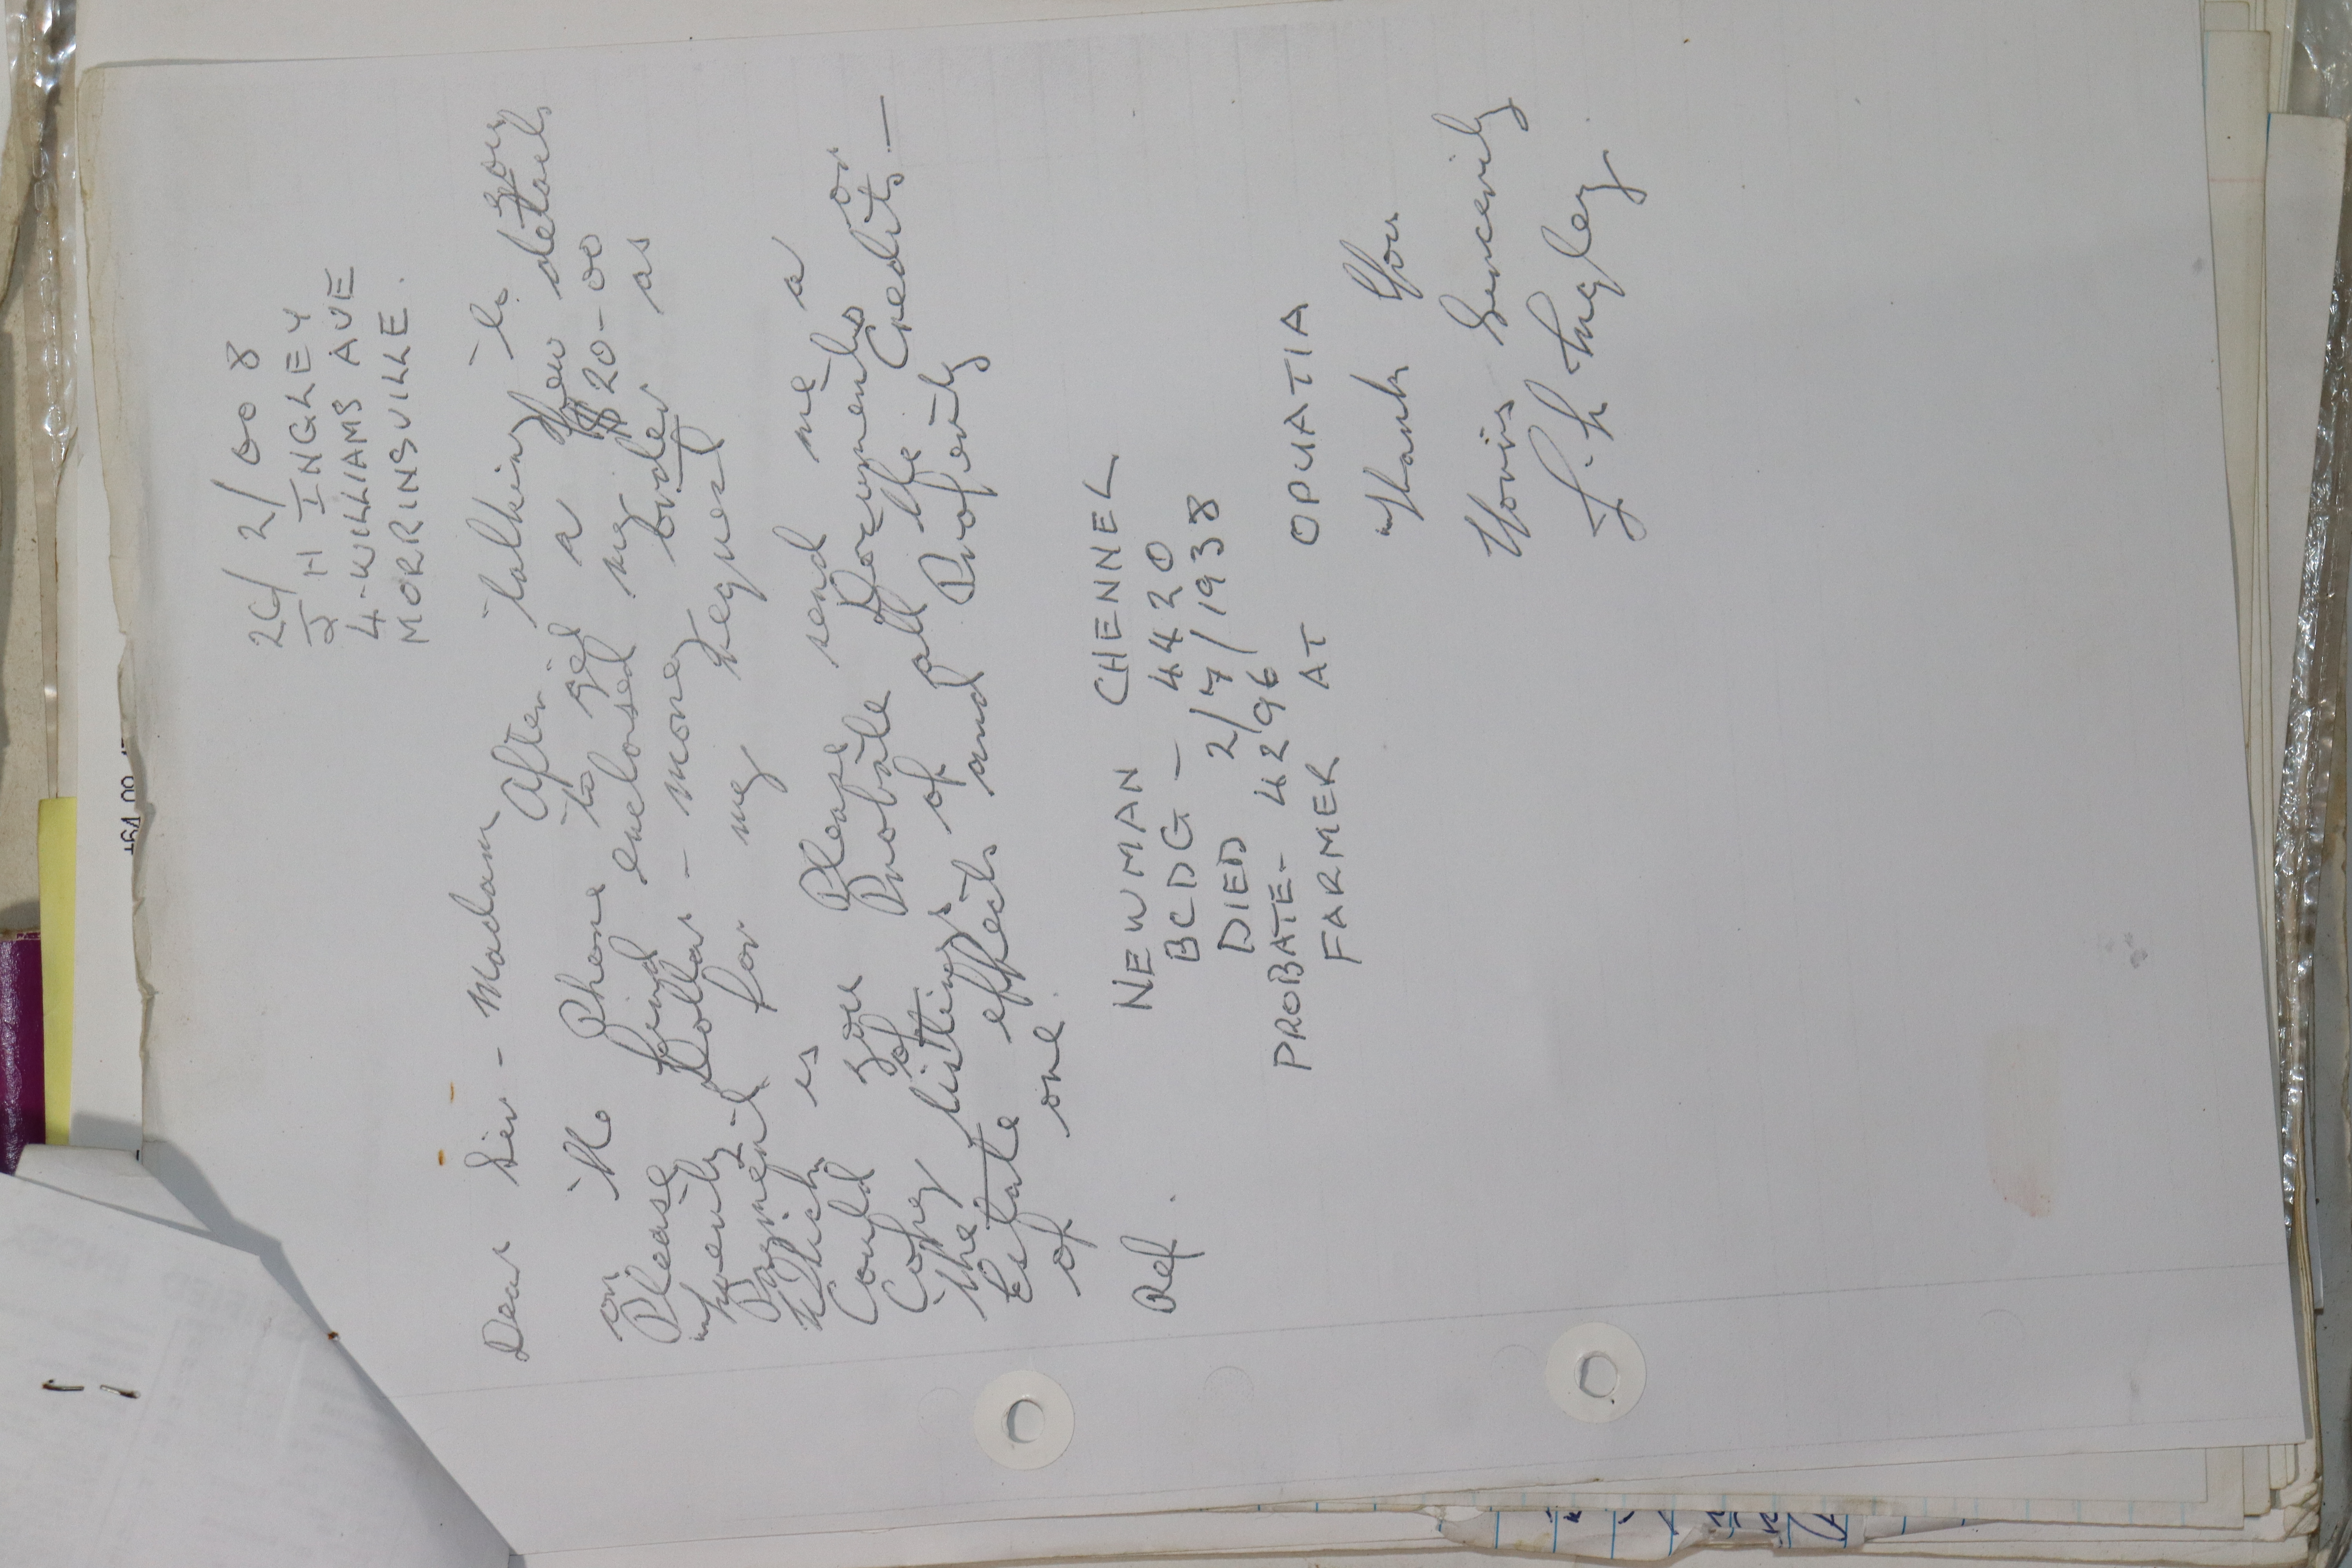 26/2/008
J H INGLEY
4-WILLIAMS AVE
MORRINSVILLE.
Dear Sir - Madam
After talking to you
on the Phone to get a few details
Please find enclosed my $20-00
twenty Dollar - money order as
Payment for my request
Which is
Could you Please send me a
Copy of Probate Documents or
the listings of all the Credits -
Estate effects and Proferity
of one.
Ref. NEWMAN CHENNEL
BCDG - 4420
DIED 2/7/1938
PROBATE - 4296
FARMER AT OPUATIA
Thank You
Yours Sincerily
J. H Ingley